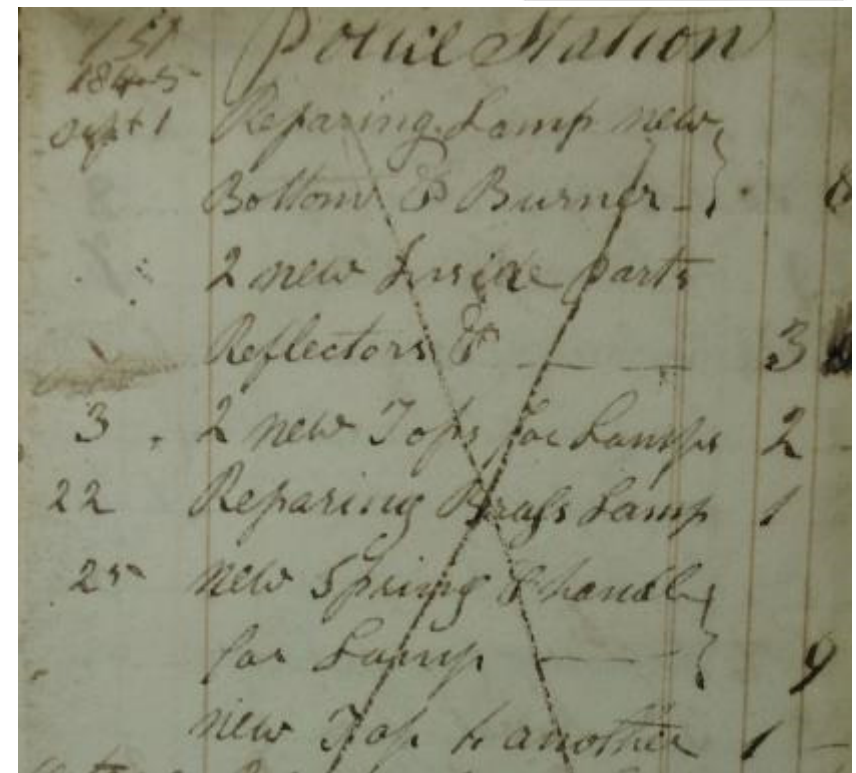 151 Police Station
1845
Sept 1 Reparing Lamp new
Bottom & Burner - 8
2 new Inside parts
Reflectors & — — 3
3 . 2 new Tops for Lamps 2 -
22 Reparing Brass Lamp 1
25 new Spring & handle
for Lamp — 9
new Top to another 1 -